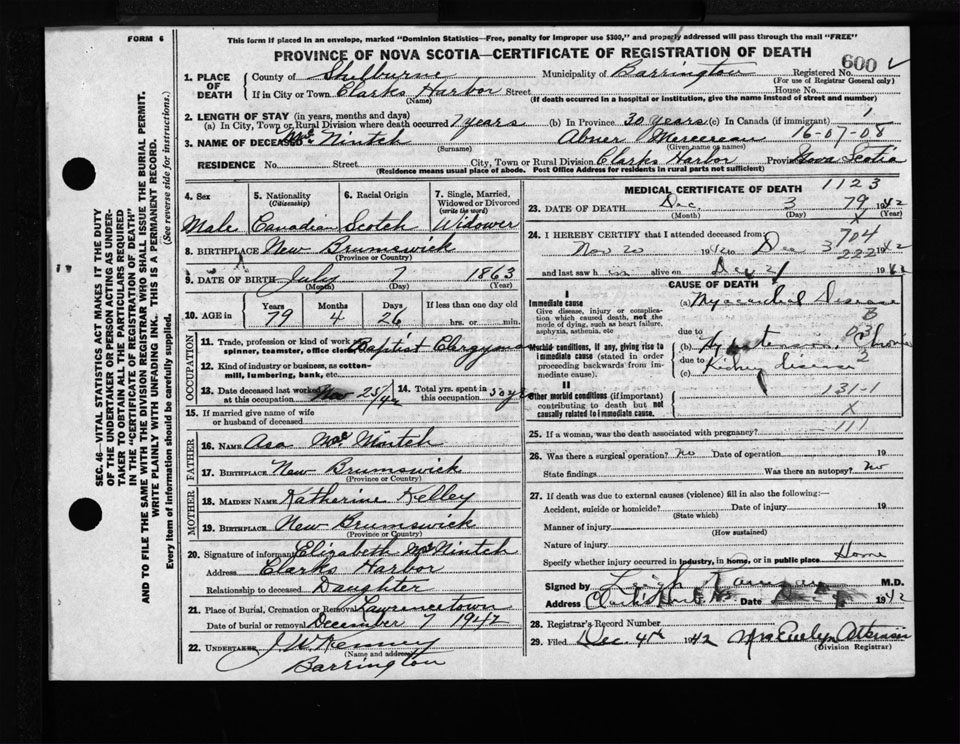 FORM 6
This form if placed in an envelope, marked "Dominion Statistics—Free, penalty for improper use $300," and properly addressed will pass through the mail "FREE"
PROVINCE OF NOVA SCOTIA—CERTIFICATE OF REGISTRATION OF DEATH
SEC. 46—VITAL STATISTICS ACT MAKES IT THE DUTY
OF THE UNDERTAKER OR PERSON ACTING AS UNDER-
TAKER TO OBTAIN ALL THE PARTICULARS REQUIRED
IN THE "CERTIFICATE OF REGISTRATION OF DEATH"
AND TO FILE THE SAME WITH THE DIVISION REGISTRAR WHO SHALL ISSUE THE BURIAL PERMIT.
WRITE PLAINLY WITH UNFADING INK. THIS IS A PERMANENT RECORD.
Every item of information should be carefully supplied. (See reverse side for instructions.)
1. PLACE OF DEATH
County of Shelburne Municipality of Barrington Registered No. 600
(For use of Registrar General only)
If in City or Town Clarks Harbor Street House No.
(Name) (If death occurred in a hospital or institution, give the name instead of street and number)
2. LENGTH OF STAY (in years, months and days)
(a) In City, Town or Rural Division where death occurred 7 years (b) In Province 30 years (c) In Canada (if immigrant) 1
3. NAME OF DECEASED Mc Nintch Abner Mersereau 16-07-08
(Surname) (Given name or names)
RESIDENCE No. Street City, Town or Rural Division Clarks Harbor Province Nova Scotia
(Residence means usual place of abode. Post Office Address for residents in rural parts not sufficient)
4. Sex
Male
5. Nationality
(Citizenship)
Canadian
6. Racial Origin
Scotch
7. Single, Married, Widowed or Divorced
(write the word)
Widower
8. BIRTHPLACE New Brunswick
(Province or Country)
9. DATE OF BIRTH July 7 1863
(Month) (Day) (Year)
10. AGE in Years Months Days If less than one day old
79 4 26 hrs. or min.
OCCUPATION
11. Trade, profession or kind of work as
spinner, teamster, office clerk Baptist Clergyman
12. Kind of industry or business, as cotton-
mill, lumbering, bank, etc.
13. Date deceased last worked at this occupation Nov 25/42
14. Total yrs. spent in this occupation 50 yrs
15. If married give name of wife
or husband of deceased
FATHER
16. NAME Asa Mc Nintch
17. BIRTHPLACE New Brunswick
(Province or Country)
MOTHER
18. MAIDEN NAME Katherine Kelley
19. BIRTHPLACE New Brunswick
(Province or Country)
20. Signature of informant Elizabeth Mc Nintch
Address Clarks Harbor
Relationship to deceased Daughter
21. Place of Burial, Cremation or Removal Lawrencetown
Date of burial or removal December 7 1942
22. UNDERTAKER J W Kenney
(Name and address)
Barrington
MEDICAL CERTIFICATE OF DEATH 1123
23. DATE OF DEATH Dec 3 79 1942
(Month) (Day) (Year)
24. I HEREBY CERTIFY that I attended deceased from: 704
Nov 20 194 to Dec 3 222 1942
and last saw h im alive on Dec 2 1942
CAUSE OF DEATH
I
Immediate cause
Give disease, injury or complication which caused death, not the mode of dying, such as heart failure, asphyxia, asthenia, etc
(a) Myocardial Disease
B
due to
Morbid conditions, if any, giving rise to immediate cause (stated in order proceeding backwards from immediate cause).
(b) Hypertension, Chronic
due to
(c) Kidney disease
II
Other morbid conditions (if important) contributing to death but not causally related to immediate cause.
131-1
X
111
25. If a woman, was the death associated with pregnancy?
26. Was there a surgical operation? No Date of operation 19
State findings Was there an autopsy? No
27. If death was due to external causes (violence) fill in also the following:—
Accident, suicide or homicide? Date of injury 19
(State which)
Manner of injury
(How sustained)
Nature of injury
Specify whether injury occurred in Industry, in home, or in public place Home
Signed by Leigh M.D.
Address Date Dec 1942
28. Registrar's Record Number
29. Filed Dec 4th 1942 Mrs Evelyn Atkinson
(Division Registrar)